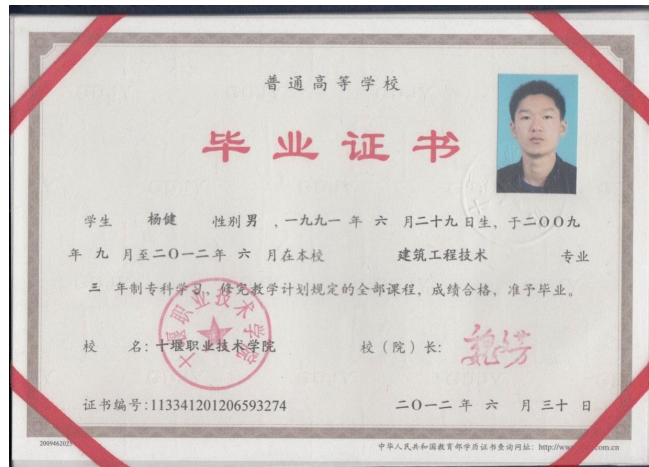 普通高等学校
毕业证书
学生 杨健 性别 男 ，一九九一 年 六 月二十九日生，于二〇〇九
年 九 月至二〇一二年 六 月在本校 建筑工程技术 专业
三 年制专科学习，修完教学计划规定的全部课程，成绩合格，准予毕业。
校 名：十堰职业技术学院 校（院）长：
十堰职业技术学院
证书编号：113341201206593274 二〇一二 年 六 月 三十 日
中华人民共和国教育部学历证书查询网址：http://www.